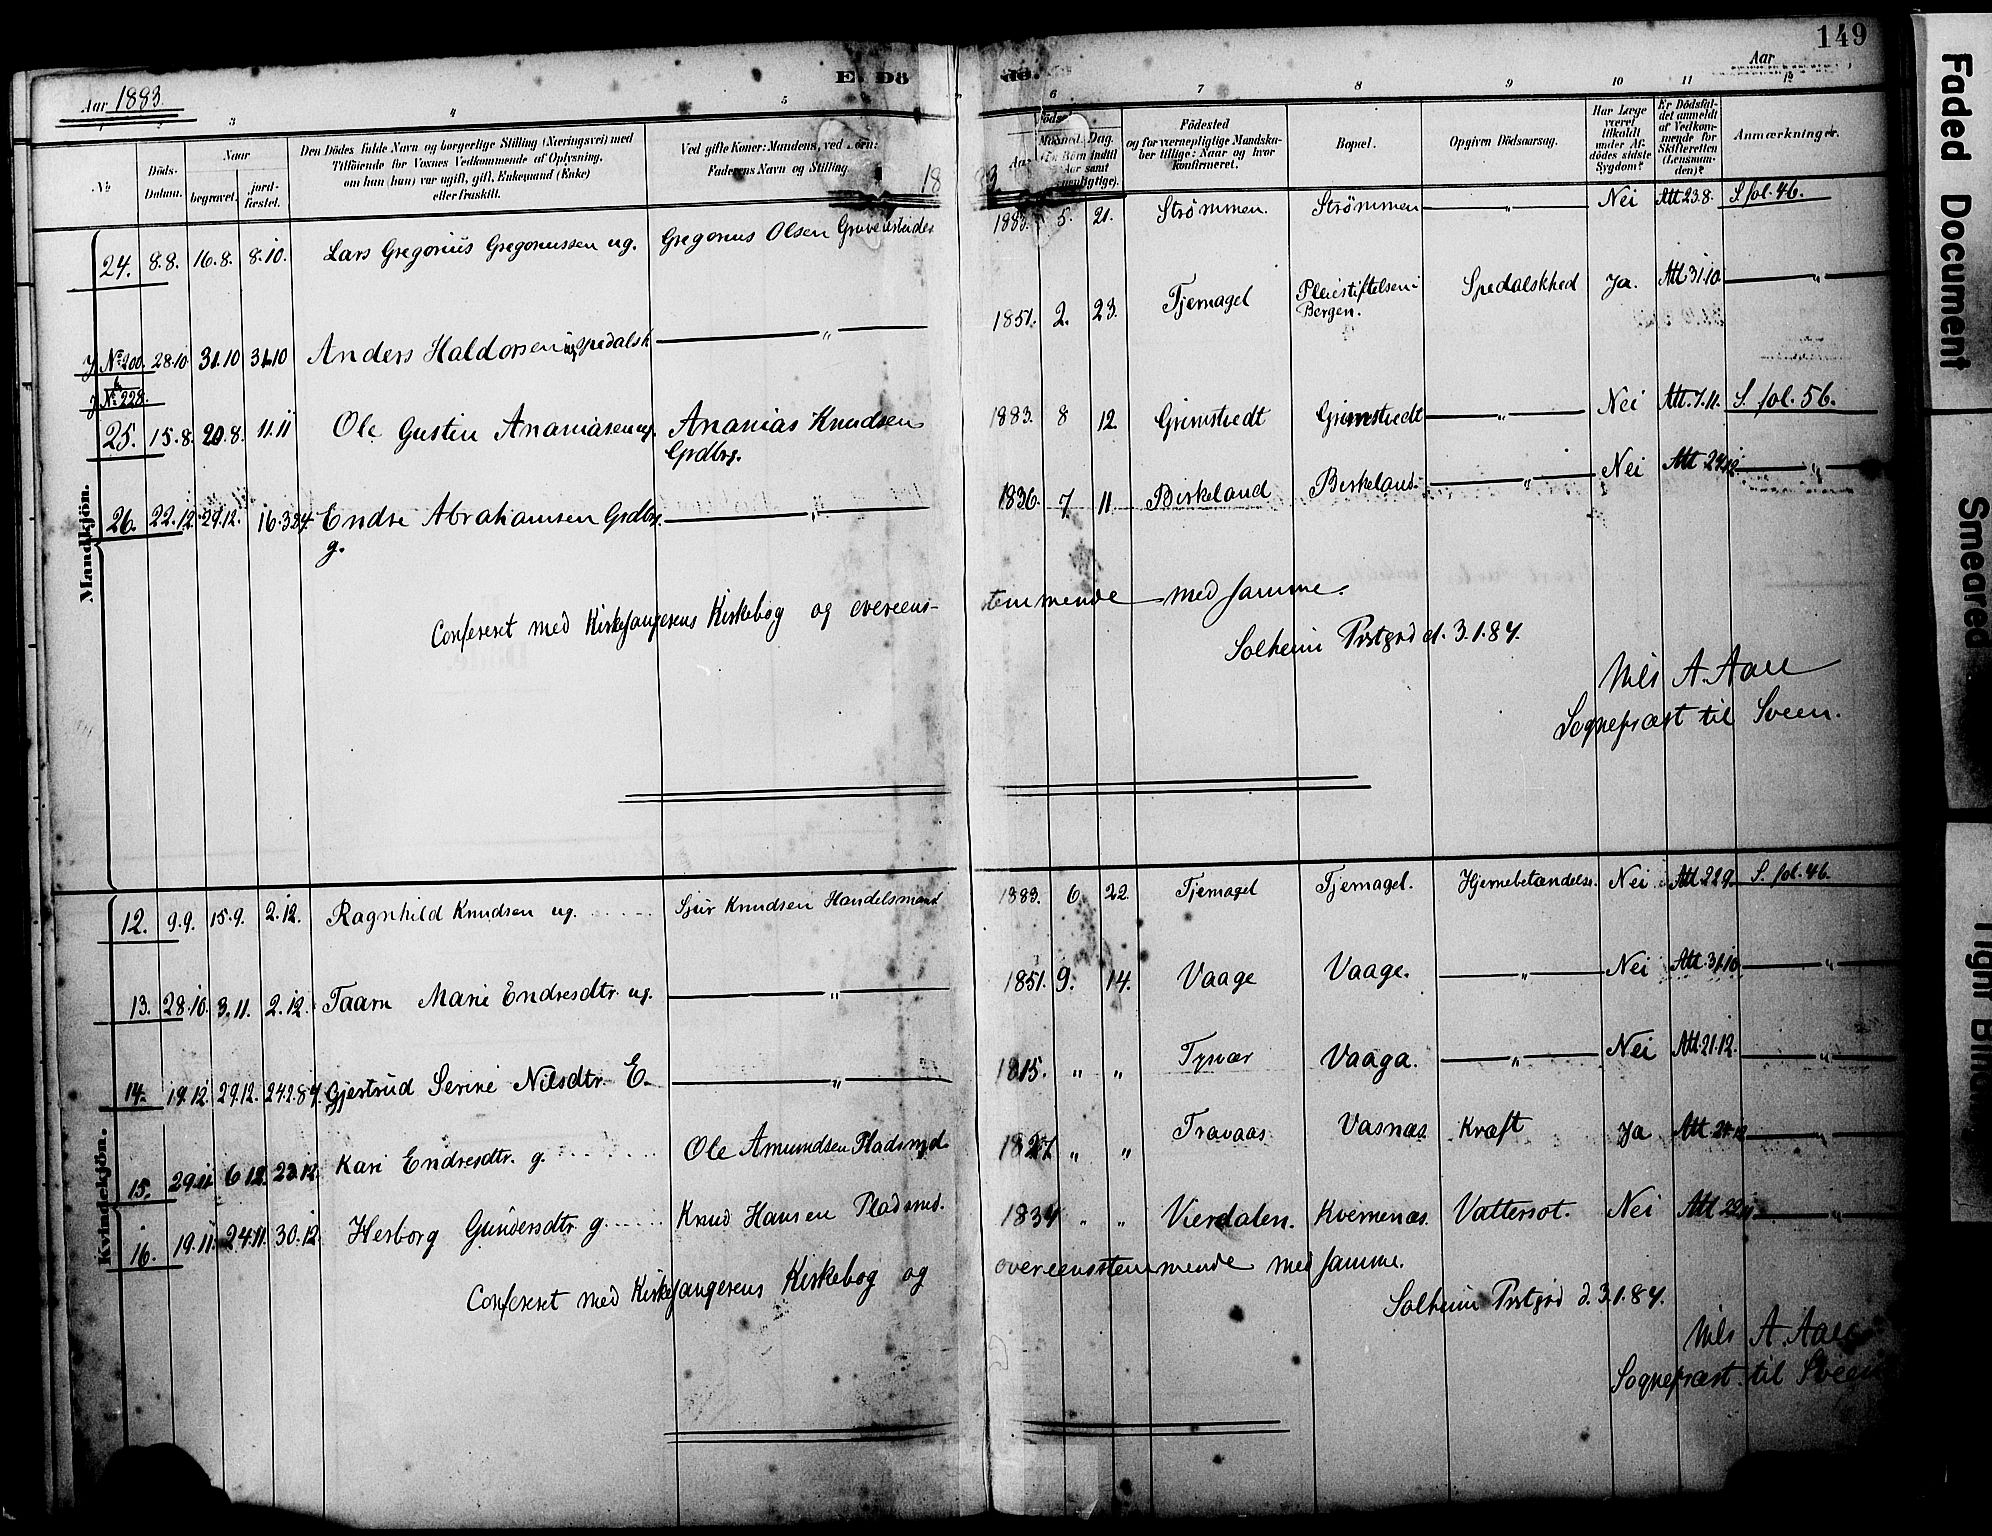 149
E. Dö
de.
Aar
Aar 1883.
18
83
3 4 5 6 7 8 9 10 11 12
№
Döds-Datum.
Naar
begravet.
jord-fæstet.
Den Dödes fulde Navn og borgerlige Stilling (Næringsvei) med
Tilföiende for Voxnes Vedkommende af Oplysning,
om han (hun) var ugift, gift, Enkemand (Enke)
eller fraskilt.
Ved gifte Koner: Mandens, ved Börn:
Faderens Navn og Stilling
Aar
Maaned. Dag.
Födested
og for værnepligtige Mandska-
ber tillige: Naar og hvor
konfirmeret.
Bopæl.
Opgiven Dödsaarsag.
Har Læge
været
tilkaldt
under Af-
dödes sidste
Sygdom?
Er Dödsfal-
det anmeldt
af Vedkom-
mende for
Skifteretten
(Lensman-
den)?
Anmærkninger.
Mandkjön.
24. 8.8. 16.8. 8.10. Lars Gregorius Gregoriussen ug. Gregorius Olsen Grubearbeider 1883. 5. 21. Strømmen. Strømmen — „ — Nei Att 23.8. S. fol. 46.
J. No 200. 28.10 31.10 31.10 Anders Haldorsen ug. spedalsk — „ — 1851. 2. 23. Tjernagel Pleiestiftelsen i Bergen. Spedalskhed Ja. Att 31.10. — „
J. No 228.
25. 15.8. 20.8. 11.11 Ole Gustin Ananiasen ug. Ananias Knudsen Grdbr. 1883. 8 12. Grimstvedt Grimstvedt — „ — Nei Att. 7.11. S. fol. 56.
26. 22.12. 29.12. 16.3.84 Endre Abrahamsen Grdbr. g. — „ — 1836. 7 11. Birkeland Birkeland. — „ — Nei Att — „ —
Confereret med Kirkesangerens Kirkebog og overeens-stemmende med samme.
Solheim Prstgrd d. 3.1.84.
Nils A. Aall
Sognepræst til Sveen.
Kvindekjön.
12. 9.9. 15.9. 2.12. Ragnhild Knudsen ug. Sjur Knudsen Handelsmand 1883. 6. 22. Tjernagel Tjernagel. Hjernebetændelse. Nei Att. 22.9. S. fol. 46.
13. 28.10. 3.11. 2.12. Taarn Marie Endresdtr. ug. — „ — 1851. 9. 14. Vaage Vaage. — „ — Nei Att. 31.10. — „
14. 19.12. 29.12. 24.2.84. Gjertrud Serine Nilsdtr. E. — „ — 1815. „ „ Tysvær Vaaga. — „ — Nei Att. 21.12. — „
15. 29.11. 6.12. 23.12. Kari Endresdtr. g. Ole Amundsen Pladsmd. 1827 „ „ Travaas Vasnæs Kræft Ja Att — „
16. 19.11. 24.11. 30.12. Herborg Gundersdtr. g. Knud Hansen Pladsmd. 1834 „ „ Vierdalen. Kvernenæs. Vattersot. Nei Att — „
Confereret med Kirkesangerens Kirkebog og overeensstemmende med samme.
Solheim Prstgrd d. 3.1.84.
Nils A. Aall
Sognepræst til Sveen
Faded Document
Smeared
Tight Binding